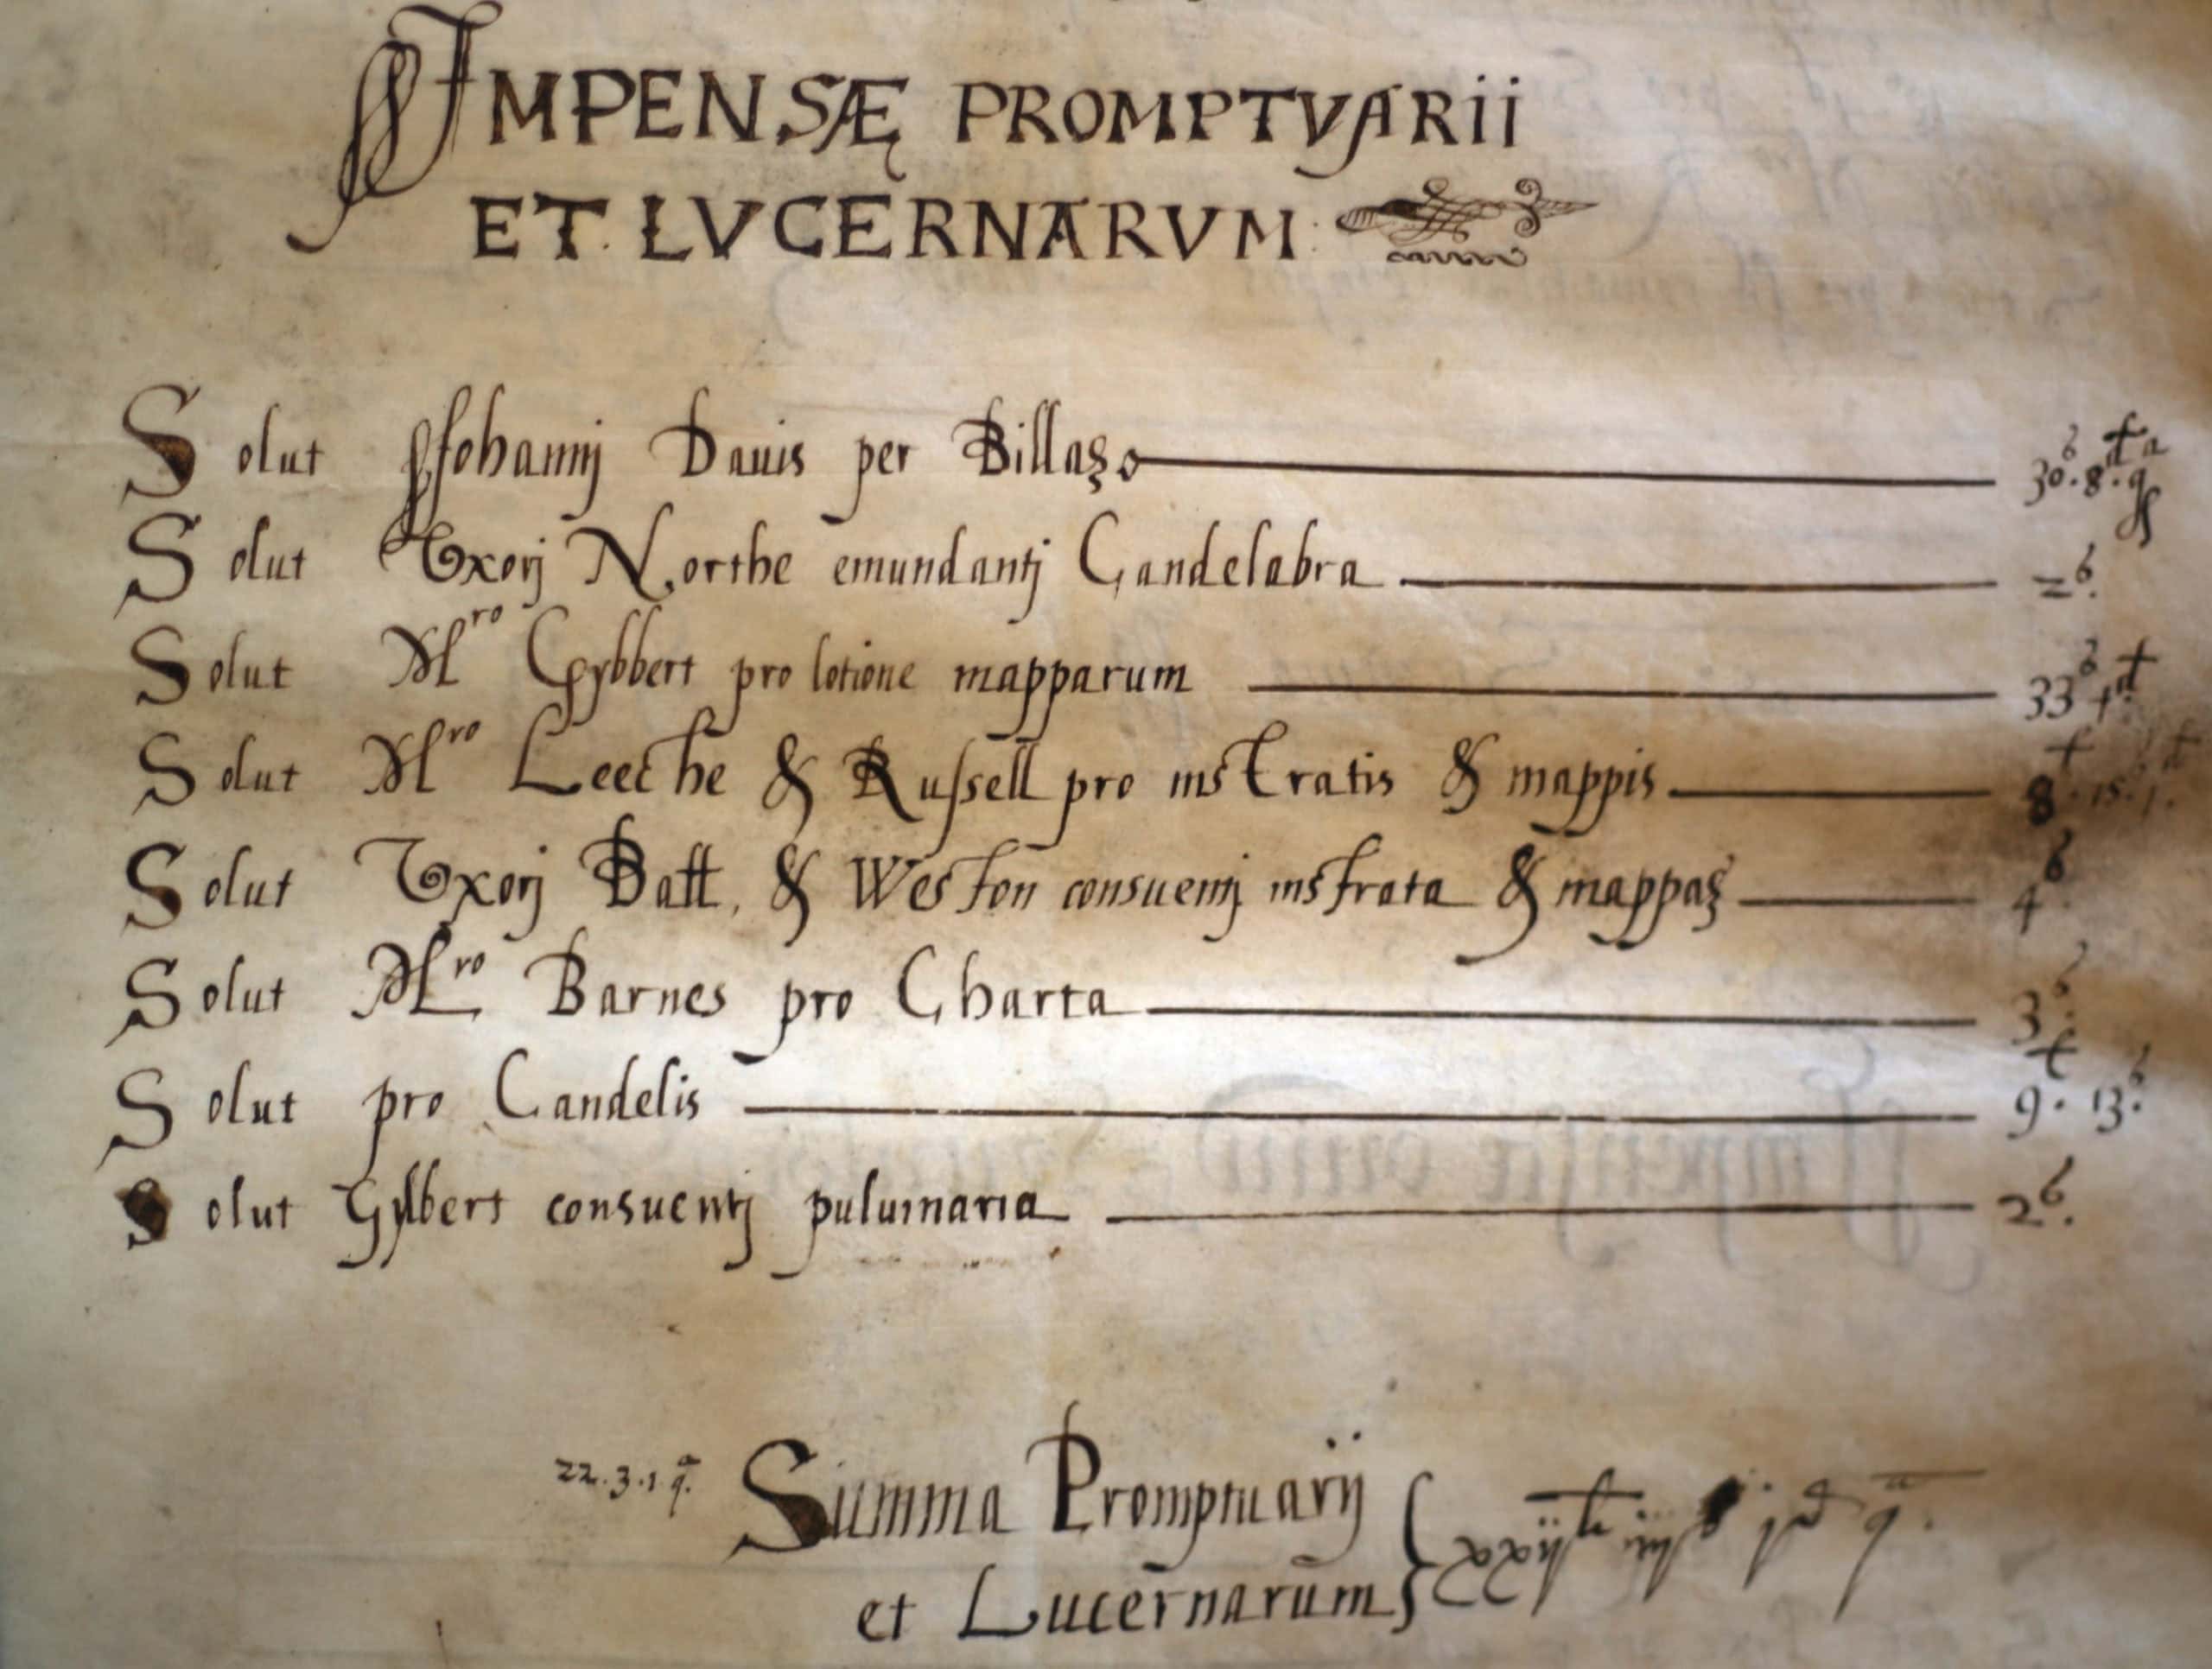 IMPENSÆ PROMPTVARII
ET LVCERNARVM
Solut Johannj Dauis per Billas 30s. 8d. qa
Solut Vxorj Northe emundantj Candelabra 2s.
Solut Mro Gybbert pro lotione mapparum 33s
Solut Mro Leeche & Russell pro instratis & mappis 8
Solut Vxorj Batt, & Weston consuentj instrata & mappas 4s
Solut Mro Barnes pro Charta 3s.
Solut pro Candelis 9. 13s.
Solut Gylbert consuentj puluinaria 2s.
22.3.1 qa. Summa Promptuarij
et Lucernarum